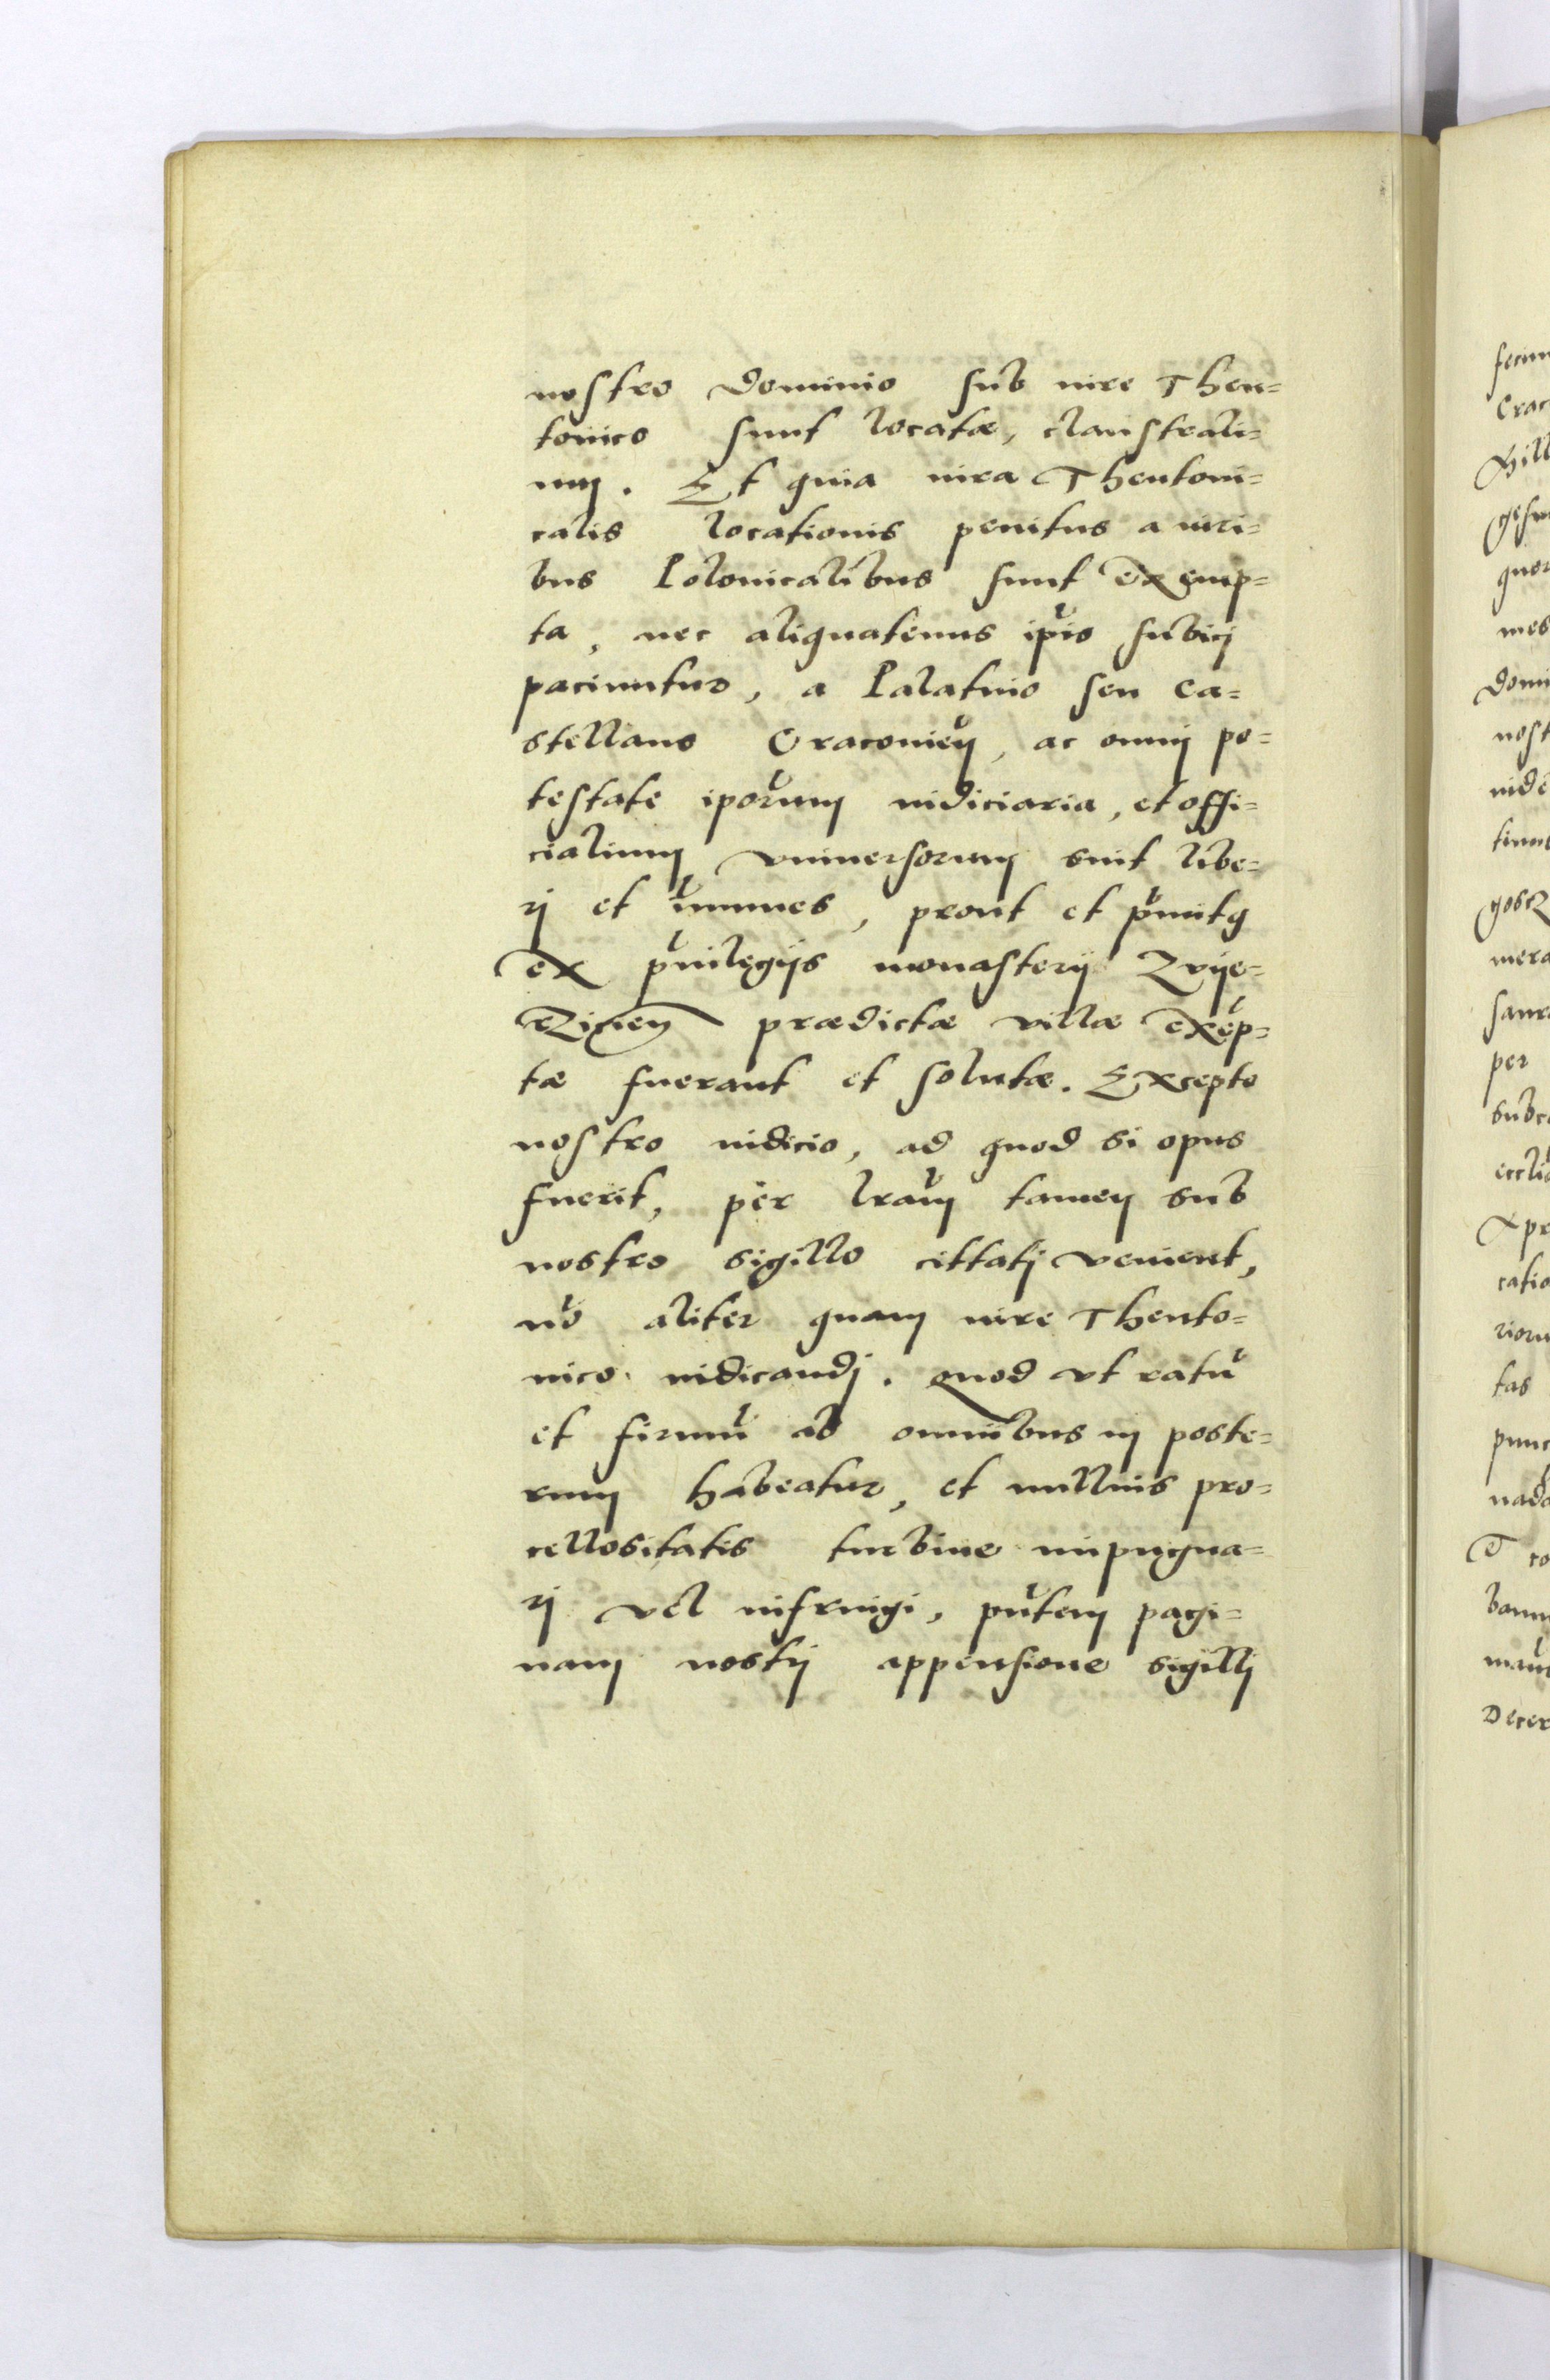 nostro dominio sub iure Theu=
tonico sunt locatæ, claustrali=
um. Et quia iura Theutoni=
calis locationis penitus a iuri=
bus Polonicalibus sunt exemp=
ta, nec aliquatenus ip̃is subicij
paciuntur, a Palatino seu Ca=
stellano Cracovieñ, ac omnij po=
testate ip̃orum iudiciaria, et offi=
cialium vniuersorum sint libe=
rj et im̃unes, prout et p̃mitq
ex p̃uilegijs monasterij Zvije=
rzincen̄ prædictæ villæ exẽp=
tæ fuerant et solutæ. Excepto
nostro iudicio, ad quod si opus
fuerit, per l̃ram tamen sub
nostro sigillo cittatj venient,
nõ aliter quam iure Theuto=
nico iudicandj. Quod vt ratũ
et firmũ ab omnibus in poste=
rum habeatur, et nullius pro=
cellositatis turbine impugna=
rj vel infringi, p̃ntem pagi=
nam nostrj appensione sigillj
fecim
Crac
Bill
gesim
quor
mes
domi
nost
iude
tinue
gosz
mera
sanc
per
subc
eccli
Xpr
catio
rioru
tas
punc
nada
E co
bann
man
Decer